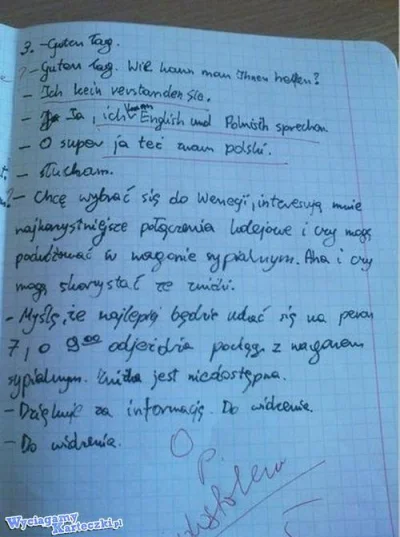 3. - Guten Tag.
- Guten Tag. Wie kann man Ihnen helfen?
- Ich kein verstanden Sie.
- Ja, ich kann English und Polnisch sprechen.
- O super ja też znam polski.
- Słucham.
- Chcę wybrać się do Wenecji, interesują mnie
najkorzystniejsze połączenia kolejowe i czy mogę
podróżować w wagonie sypialnym. Aha i czy
mogę skorzystać ze zniżki.
- Myślę, że najlepiej będzie udać się na peron
7, o 9⁰⁰ odjeżdża pociąg z wagonem
sypialnym. Zniżka jest niedostępna.
- Dziękuję za informację. Do widzenia.
- Do widzenia.
Wyciagamy
Karteczki.pl